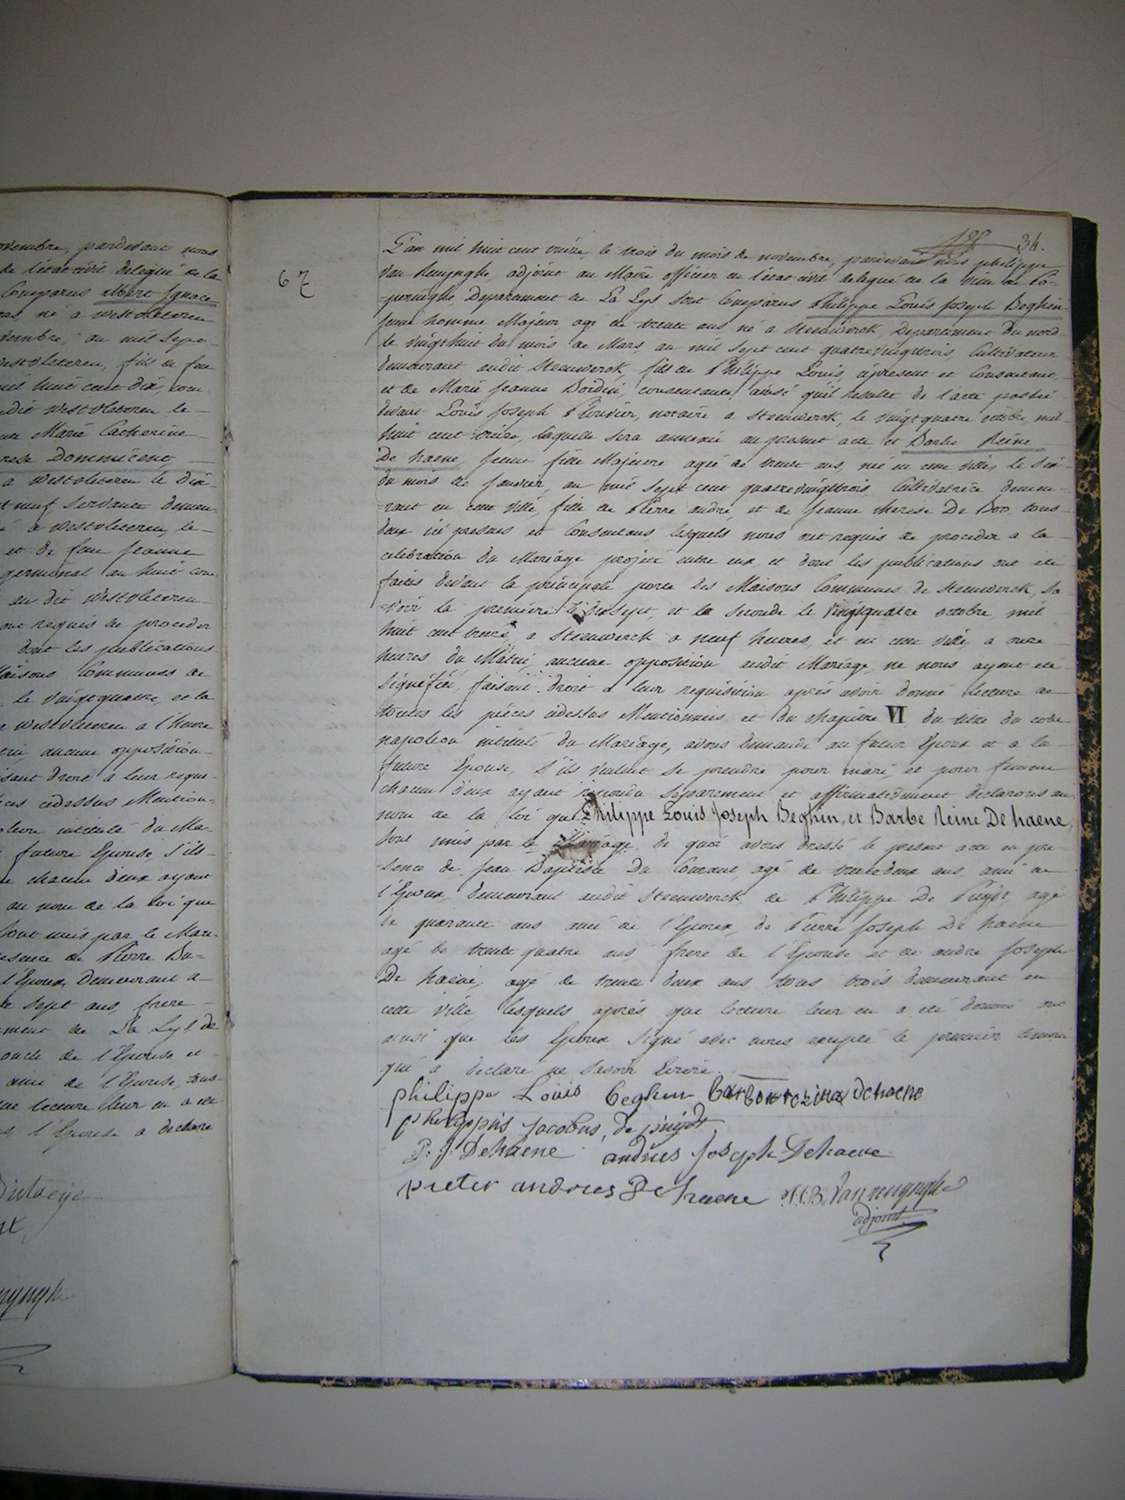 ovembre, pardevant nous
de l'état civil délégué de la
Comparus Albert Ignace
né a westvleteren
vembre, au mil sept
westvleteren, fils de feu
huit cent dix, cou
udit westvleteren le
Marie Catherine
Dommicent
a westvleteren le dix
neuf servante demeu
a westvleteren, le
et de feue Jeanne
germinal an huit con
au dit westvleteren
ont requis de proceder
dont les publications
Maisons Communes de
le vingtquatre et la
westvleteren a l'heure
aucune opposition
isant droit a leur requi
ces cidessus Mention
oleon intitulé du Ma
future Epouse, s'ils
chacun d'eux ayant
au nom de la loi que
sont unis par le Mari
esence de Pierre Du
l'Epoux, demeurant a
sept ans, frere
ment de La Lys de
oncle de l'Epouse et
ami de l'Epouse, tous
lecture leur en a été
l'Epouse a declaré
67
34.
L'an mil huit cent treize, le trois du mois de novembre, pardevant nous philippe
Van Renynghe adjoint au Maire officier de l'état civil delegué de la ville de Po-
peringhe Departement de La Lys sont Comparus Philippe Louis Joseph Beghin
jeune homme Majeur agé de trente ans né a Steenwerck Departement du nord
le vingthuit du mois de Mars, au mil sept cent quatrevingttrois Cultivateur
demeurant audit Steenwerck, fils de Philippe Louis, cipresent et Consentant,
et de Marie Jeanne Boidin, consentante, ainsi qu'il resulte de l'acte passé
devant Louis Joseph Plouvier, notaire a Steenwerck, le vingtquatre octobre mil
huit cent treize, laquelle sera annexée au present acte et Barbe Reine
De haene, jeune fille Majeure agée de trente ans, née en cette ville, le six
du mois de Janvier, au mil sept cent quatrevingttrois Cultivatrice demeu-
rant en cette ville, fille de Pierre andré, et de Jeanne therese De Boo, tous
deux ici presens et Consentans lesquels nous ont requis de proceder a la
celebration du Mariage projetté entre eux, et dont les publications ont été
faites devant la principale porte des Maisons Communes de Steenwerck, sa
voir la premiere le dixsept, et la seconde le vingtquatre octobre, mil
huit cent treize, a Steenwerck a neuf heures, et en cette ville, a onze
heures du Matin, aucune opposition audit Mariage, ne nous ayant été
signifiée, faisant droit a leur requisition après avoir donné lecture de
toutes les pièces cidessus Mentionnées, et du chapitre VI du titre du code
napoleon intitulé du Mariage, avons demandé au futur Epoux et a la
future Epouse, s'ils veulent se prendre pour mari et pour femme
chacun d'eux ayant repondu separement et affirmativement declarons au
nom de la loi que Philippe Louis Joseph Beghin, et Barbe Reine De haene,
sont unis par le Mariage, de quoi avons dressé le present acte en pre-
sence de Jean Baptiste Du Courant, agé de trentedeux ans, ami de
l'Epoux, demeurant audit Steenwerck, de Philippe De Puydt, agé
de quarante ans ami de l'Epoux, de Pierre Joseph De haene
agé de trente quatre ans frere de l'Epouse et de andré Joseph
De haene, agé de trente deux ans, tous trois demeurant en
cette ville, lesquels après que lecture leur en a été donnée ont
ainsi que les Epoux signé avec nous excepté le premier temoin
qui a declaré ne savoir Ecrire.
philippe Louis Beghin Barbara rezina dehaene
philippus jacobus, de puijdt
P. J. DeHaene andries Joseph Dehaene
pieter andries De haene P.J.B. Vanrenynghe
adjoint